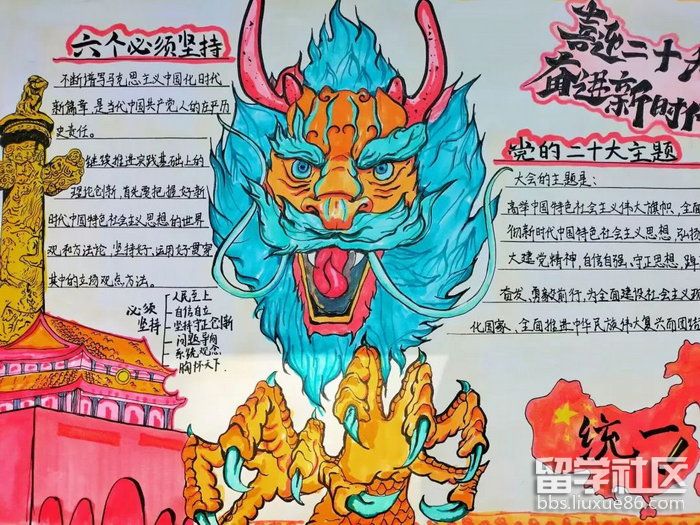 六个必须坚持
不断谱写马克思主义中国化时代
新篇章,是当代中国共产党人的庄严历
史责任。
继续推进实践基础上的
理论创新,首先要把握好新
时代中国特色社会主义思想的世界
观和方法论,坚持好、运用好贯穿
其中的立场观点方法。
必须
坚持
人民至上
自信自立
坚持守正创新
问题导向
系统观念
胸怀天下
喜迎二十大
奋进新时代
党的二十大主题
大会的主题是:
高举中国特色社会主义伟大旗帜,全面
彻新时代中国特色社会主义思想,弘扬
大建党精神,自信自强、守正思想,踔
奋发、勇毅前行,为全面建设社会主义
化国家、全面推进中华民族伟大复兴而团结
统一
留学社区
bbs.liuxue86.com